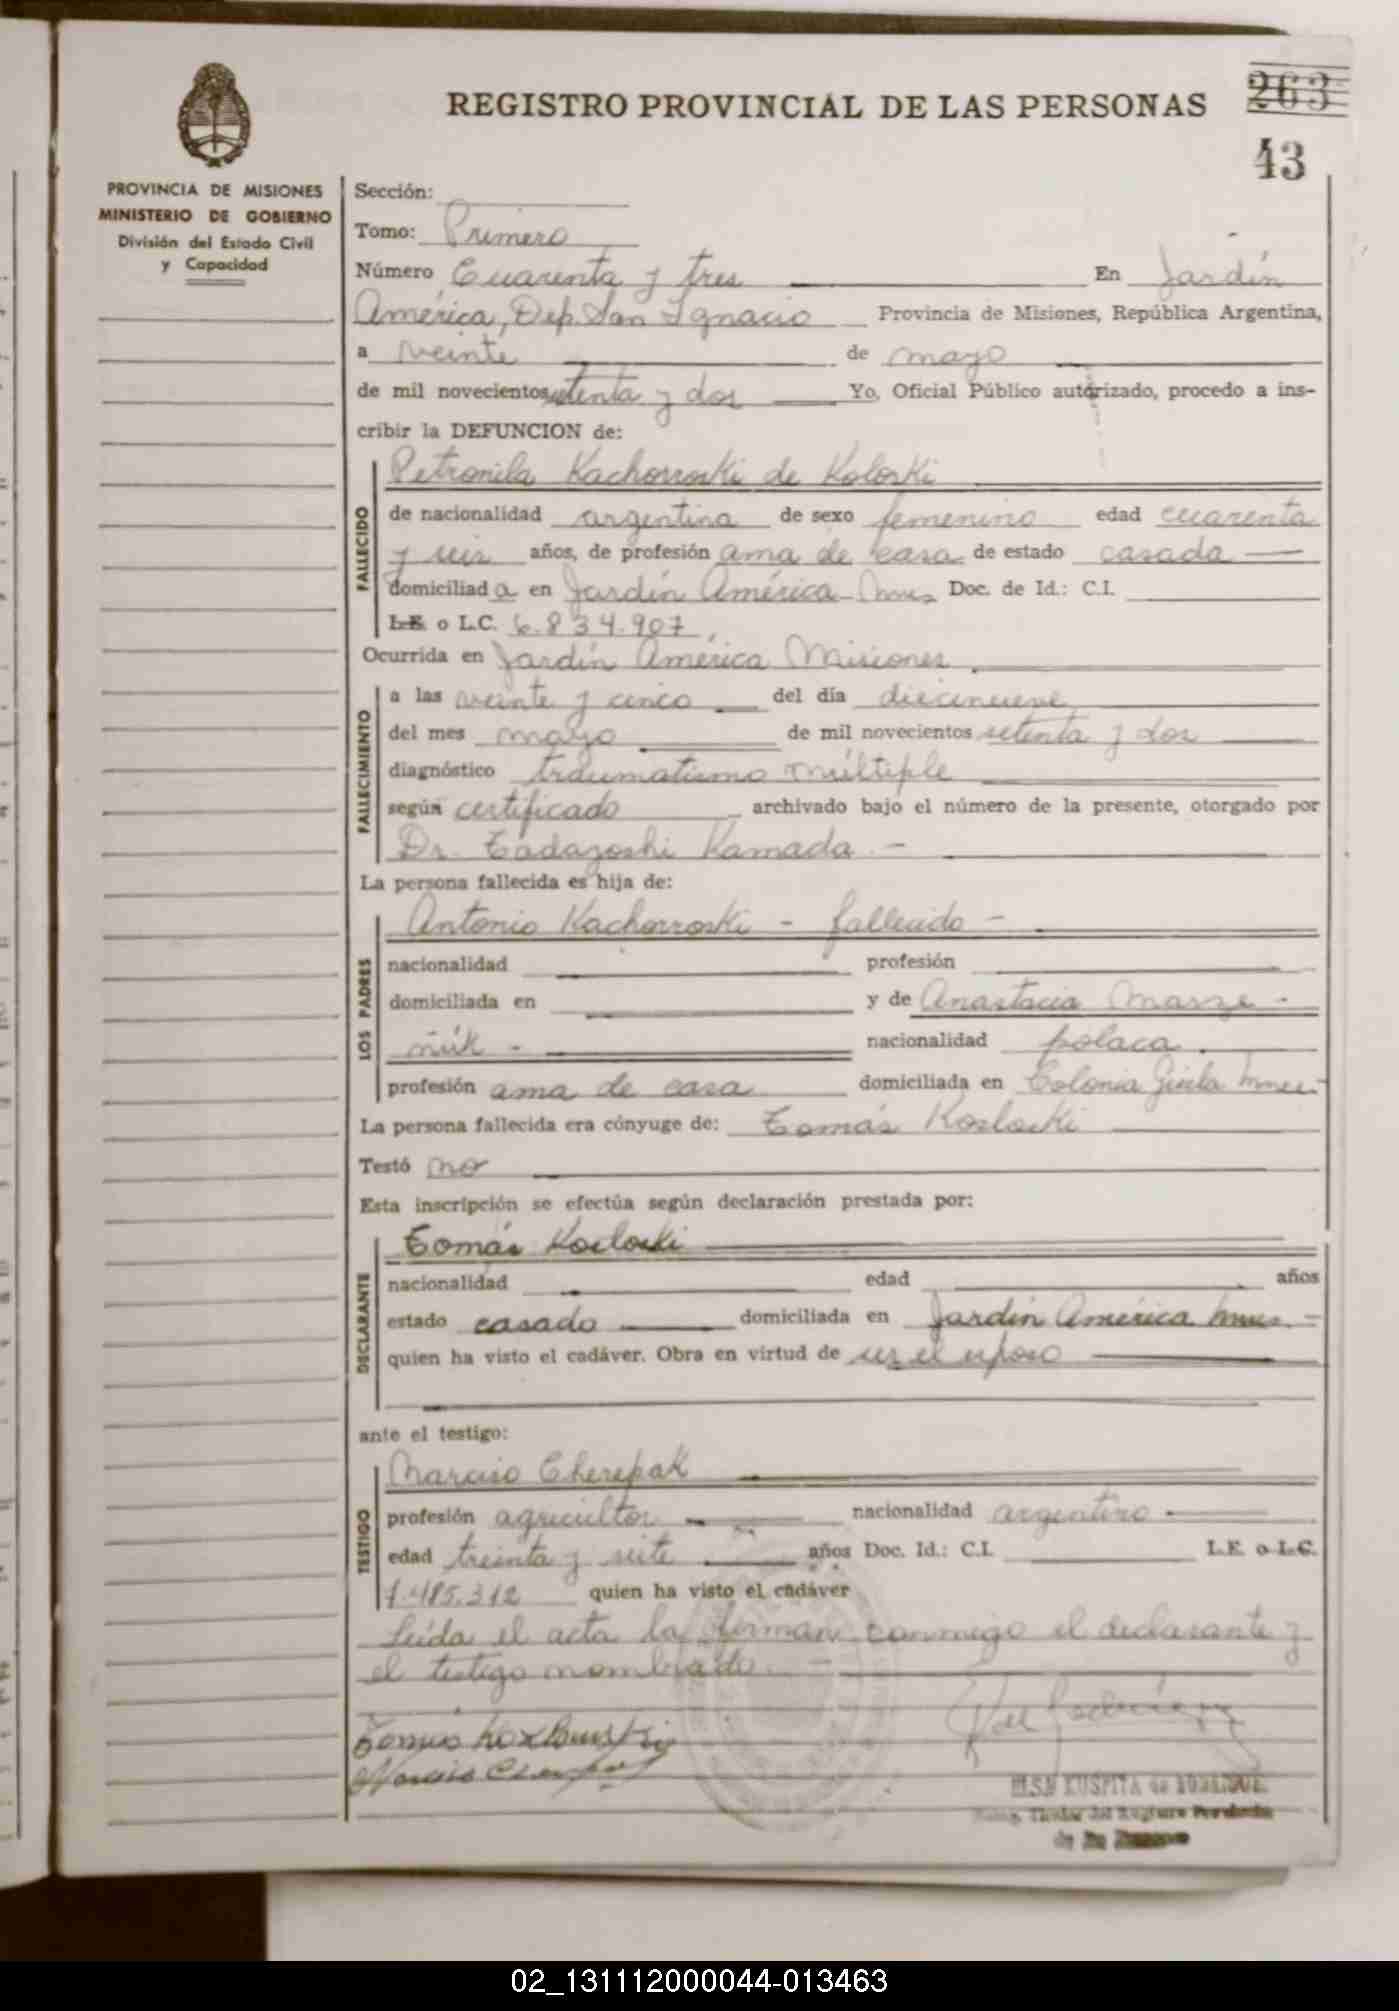 REGISTRO PROVINCIAL DE LAS PERSONAS
263
43
PROVINCIA DE MISIONES
MINISTERIO DE GOBIERNO
División del Estado Civil
y Capacidad
Sección:
Tomo: Primero
Número Cuarenta y tres En Jardín
América, Dep. San Ignacio Provincia de Misiones, República Argentina,
a veinte de mayo
de mil novecientos setenta y dos Yo, Oficial Público autorizado, procedo a ins-
cribir la DEFUNCION de:
FALLECIDO
Petronila Kachorroski de Koloski
de nacionalidad argentina de sexo femenino edad cuarenta
y seis años, de profesión ama de casa de estado casada
domiciliada en Jardín América Mnes Doc. de Id.: C.I.
L.E. o L.C. 6.834.907
Ocurrida en Jardín América Misiones
FALLECIMIENTO
a las veinte y cinco del día diecinueve
del mes mayo de mil novecientos setenta y dos
diagnóstico traumatismo múltiple
según certificado archivado bajo el número de la presente, otorgado por
Dr. Tadazoshi Kamada -
La persona fallecida es hija de:
LOS PADRES
Antonio Kachorroski - fallecido -
nacionalidad profesión
domiciliada en y de Anastacia Marze -
ñúk - nacionalidad polaca
profesión ama de casa domiciliada en Colonia Mnes.
La persona fallecida era cónyuge de: Tomás Kosloski
Testó no
Esta inscripción se efectúa según declaración prestada por:
DECLARANTE
Tomás Kosloski
nacionalidad edad años
estado casado domiciliada en Jardín América Mnes. -
quien ha visto el cadáver. Obra en virtud de ser el esposo
ante el testigo:
TESTIGO
Narciso Cherepak
profesión agricultor nacionalidad argentino
edad treinta y siete años Doc. Id.: C.I. L.E. o L.C.
7.485.312 quien ha visto el cadáver
Leída el acta la firman conmigo el declarante y
el testigo nombrado. -
Tomás
Narciso
02_131112000044-013463